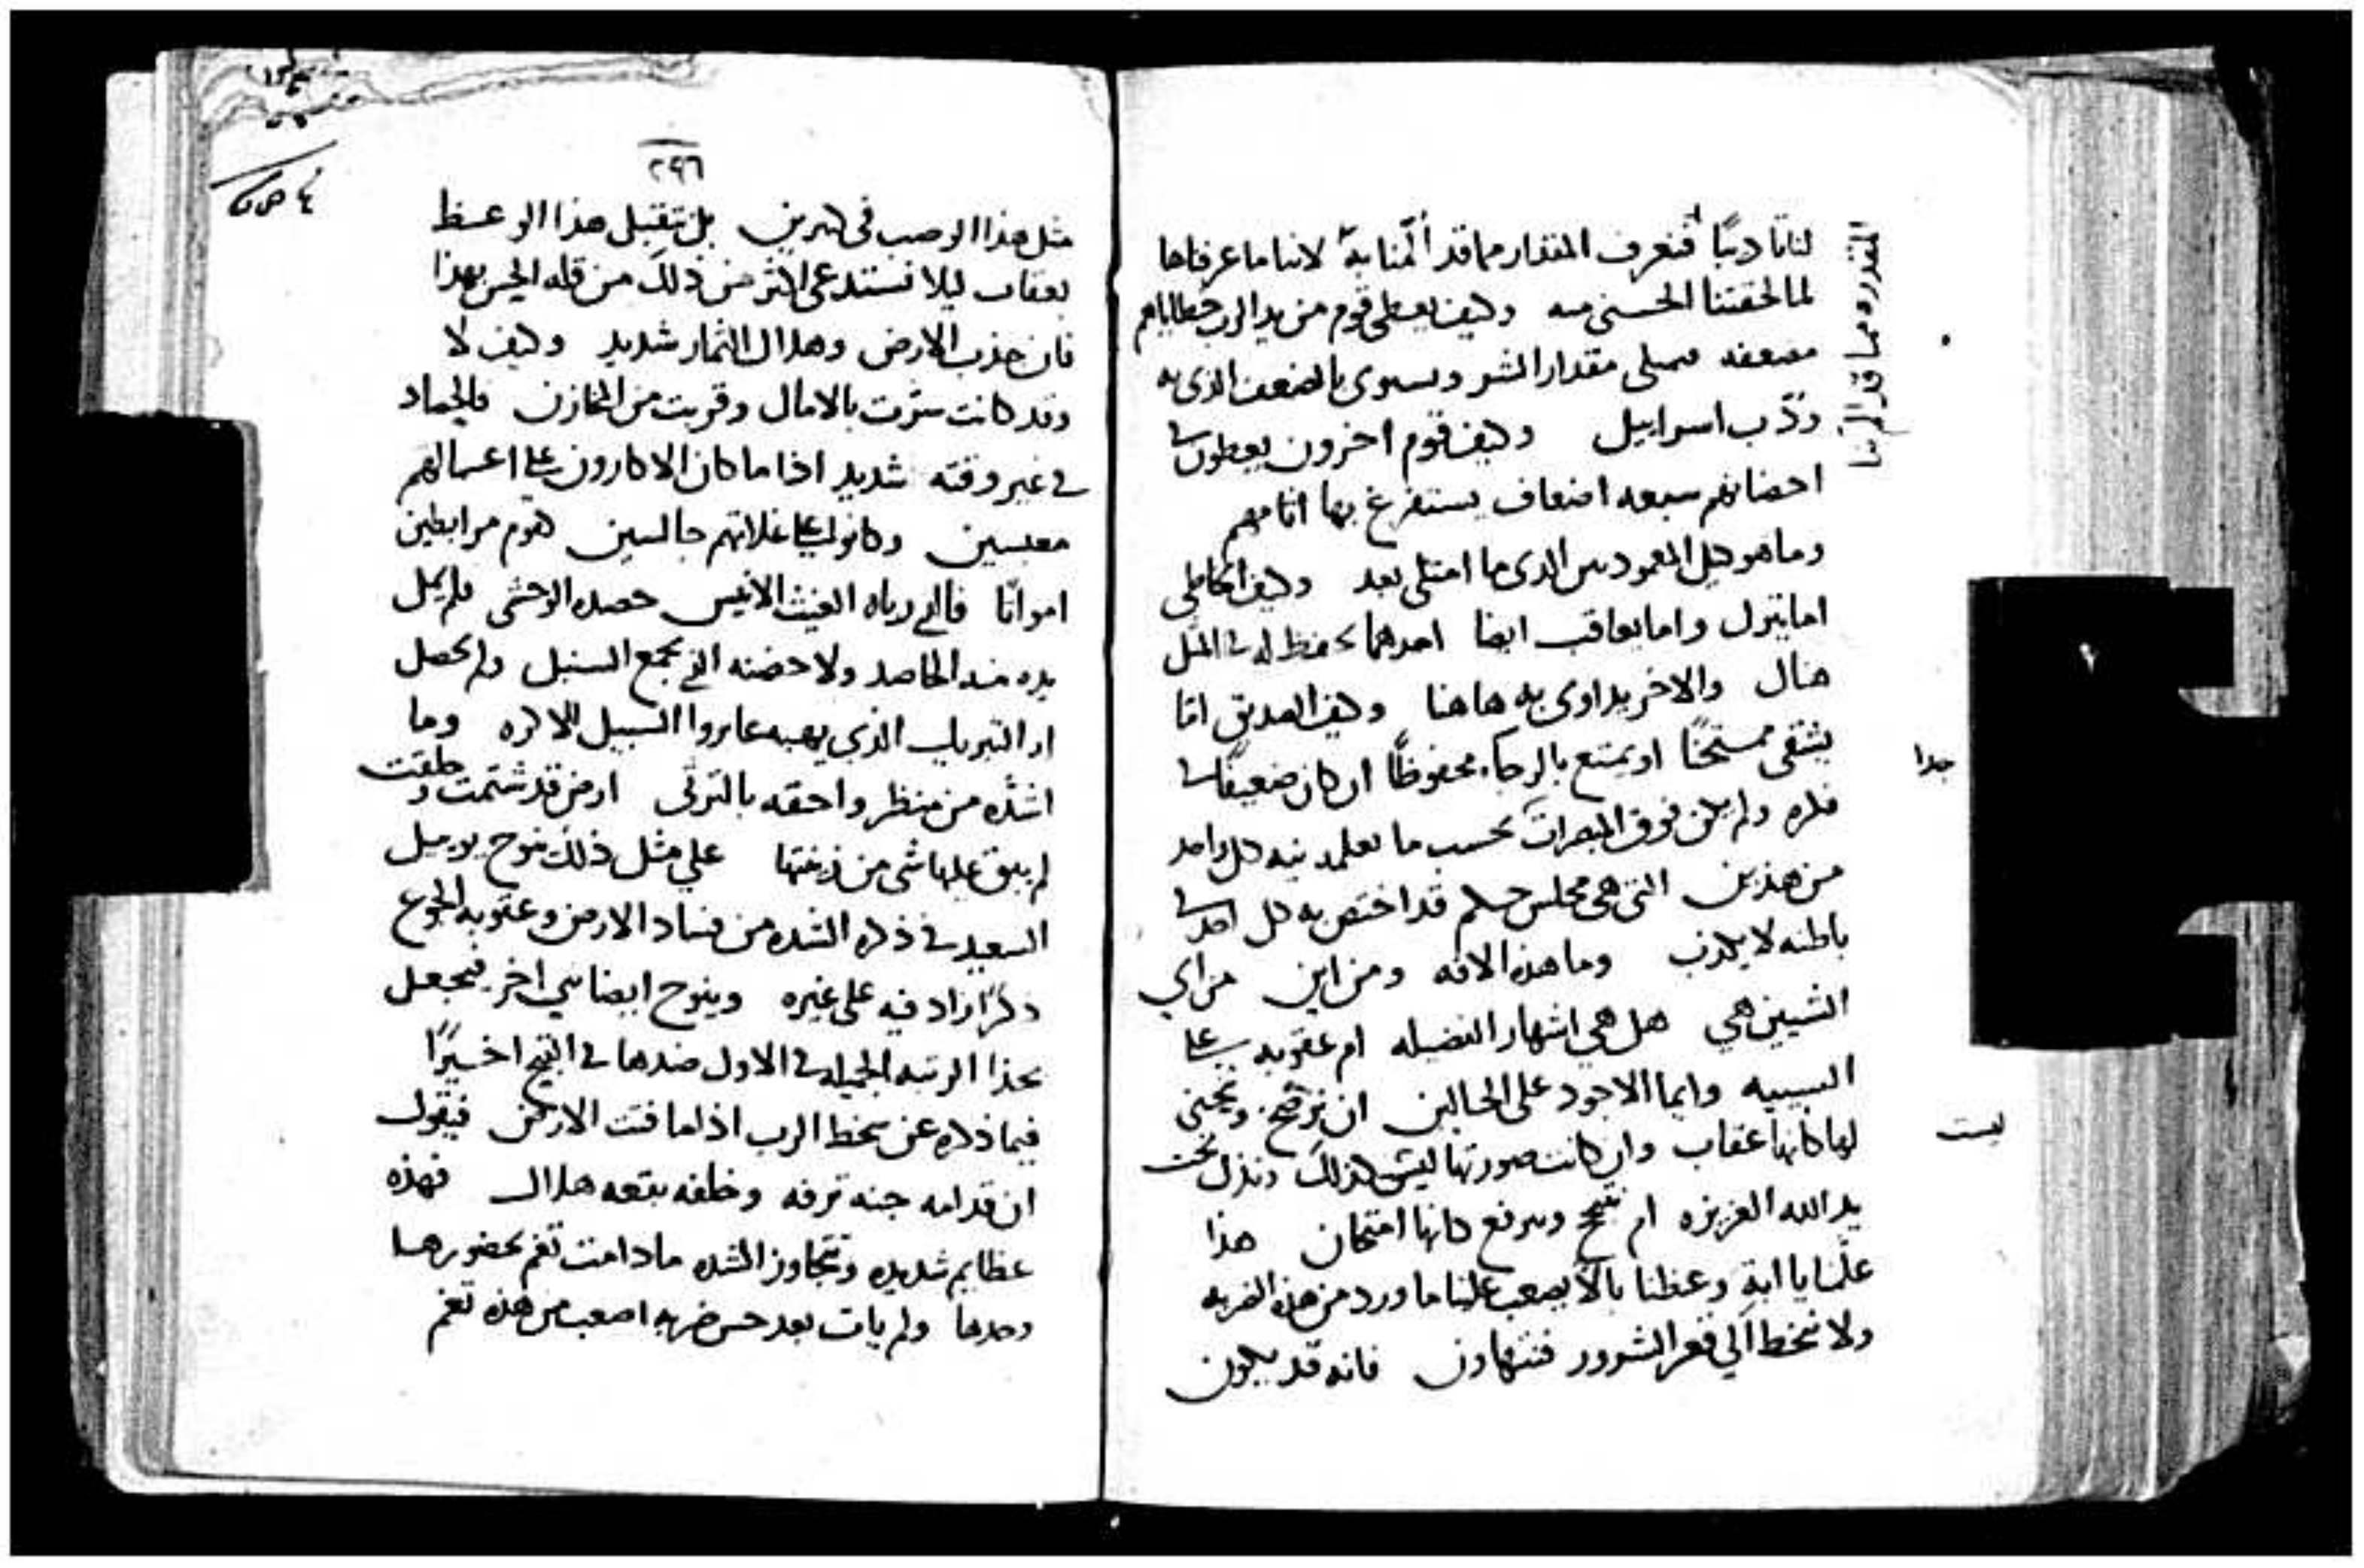 لنا تاديبًا فنعرف المقدار مما قد ألمنا به لاننا ما عرفناها
لما لحقتنا الحسنى منه وكيف يعطى قوم من يد الرب خطاياهم
مضعفه فيمتلى مقدار الشر ويستوى بالضعف الذى به
ودّب اسراييل وكيف قوم اخرون يعطون في
احضانهم سبعه اضعاف يستفرغ بها اثامهم
وما هو كيل الذى ما امتلى بعد وكيف الخاطي
اما يترك واما يعاقب ايضا احدهما يحفظ له في
هناك والاخر يداوى به هاهنا وكيف الصديق اما
يشقى ممتحنًا او يمتع بالرخاء محفوظًا ان كان ضعيفًا في
فكره ولم يكن فوق المبصرات بحسب ما يعلمه نيه كل واحد
من هذين التى هى مجلس حكم قد اختص به كل احد في
باطنه لا يكذب وما هذه الافه ومن اين من اي
الشيين هي هل هي اشهار الفضيله ام عقوبه على
السييه وايما الاجود على الحالين ان نرضخ وننحنى
لها كانها عقاب وان كانت صورتها ليس كذلك ونذل تحت
يد الله العزيزه ام ونرتفع كانها امتحان هذا
علّمنا يا ابةِ وعظنا بالا يصعب علينا ما ورد من هذه الضربه
ولا ننخط الي قعر الشرور فنتهاون فانه قد يكون
المقدره مما قد المّ بنا
جدا
ليست
٢٩٦
مثل هذا الوصب فى كثيرين بل نتقبل هذا الوعظ
بعقاب ليلا نستدعى اكثر من ذلك من قله الحس بهذا
فان جذب الارض وهلاك الثمار شديد وكيف لا
وقد كانت سرّت بالامال وقربت من المخازن فالحصاد
في غير وقته شديد اذا ما كان الاكارون على اعمالهم
معبسين وكانوا على غلاتهم جالسين كقوم مرابطين
امواتًا فالذى رباه الغيث الانيس حصده الوحشى فلم يمل
يده منه الحاصد ولا حضنه الذي يجمع السنبل ولم يحصل
له التبريك الذي يهبه عابروا السبيل للاكره وما
اشدّه من منظر واحقه بالترثى ارض قد شتمت وحلقت
لم يبق عليها شى من زينتها على مثل ذلك ينوح يوييل
السعيد في ذكره الشده من فساد الارض وعقوبه الجوع
ذكرًا زاد فيه على غيره وينوح ايضا نبي اخر فيجعل
بحذا الرتبه الجميله في الاول ضدها في القبح اخيرًا
فيما ذكره عن سخط الرب اذ لما فنت الارض فيقول
ان قدامه جنه ترفه وخلفه بقعه هلاك فهذه
عظايم شديده وتتجاوز الشده ما دامت تغم بحضورها
وحدها ولم يات بعد حس ضربه اصعب من هذه تغم